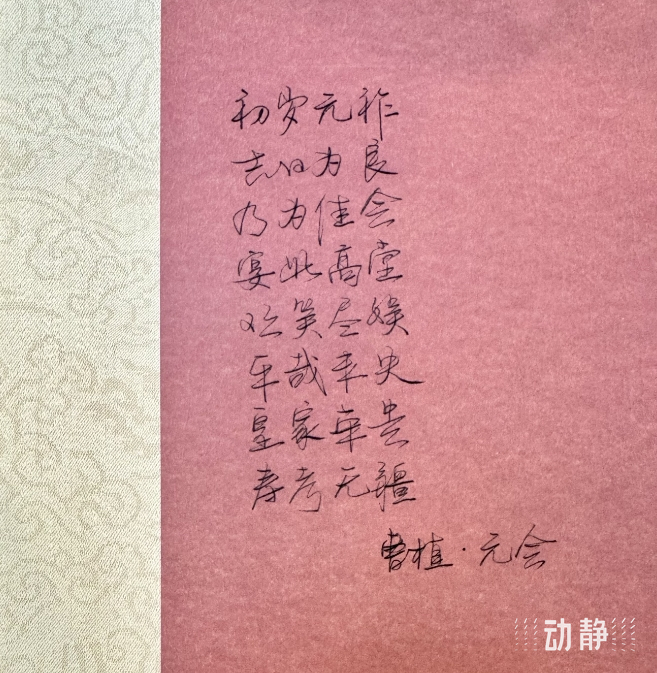 初岁元祚
吉日为良
乃为佳会
宴此高堂
欢笑尽娱
乐哉未央
皇家荣贵
寿考无疆
曹植·元会
动静